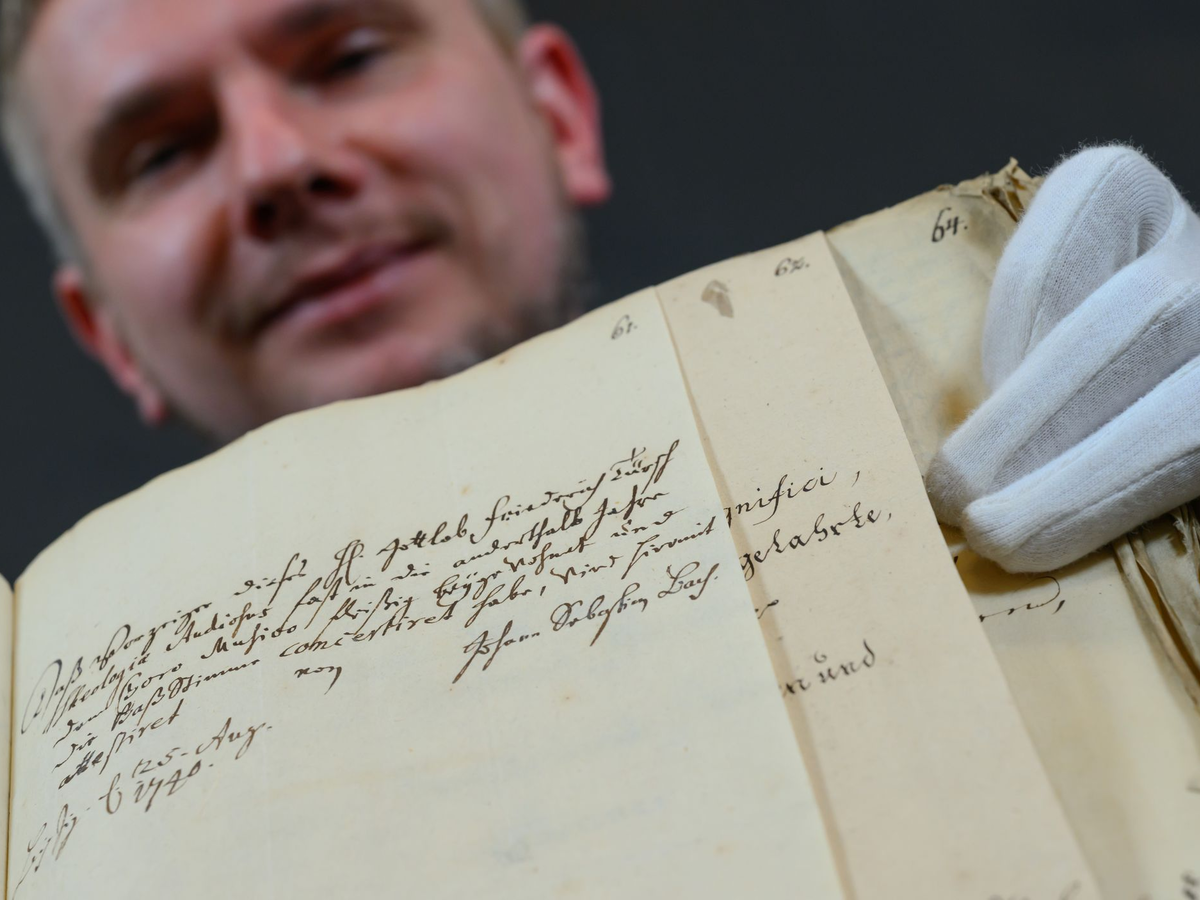 61.
Daß Vorzeiger dieses H. Gottlob Friedrich Türsch
Theologiæ Studiosus fast in die anderthalb Jahre
dem Choro Musico fleißig beygewohnet und
die Baß Stimme concertiret habe, wird hiermit
attestiret von Johann Sebastian Bach.
25. Aug.
1740.
62.
gnifici,
gelahrte,
n und
64.